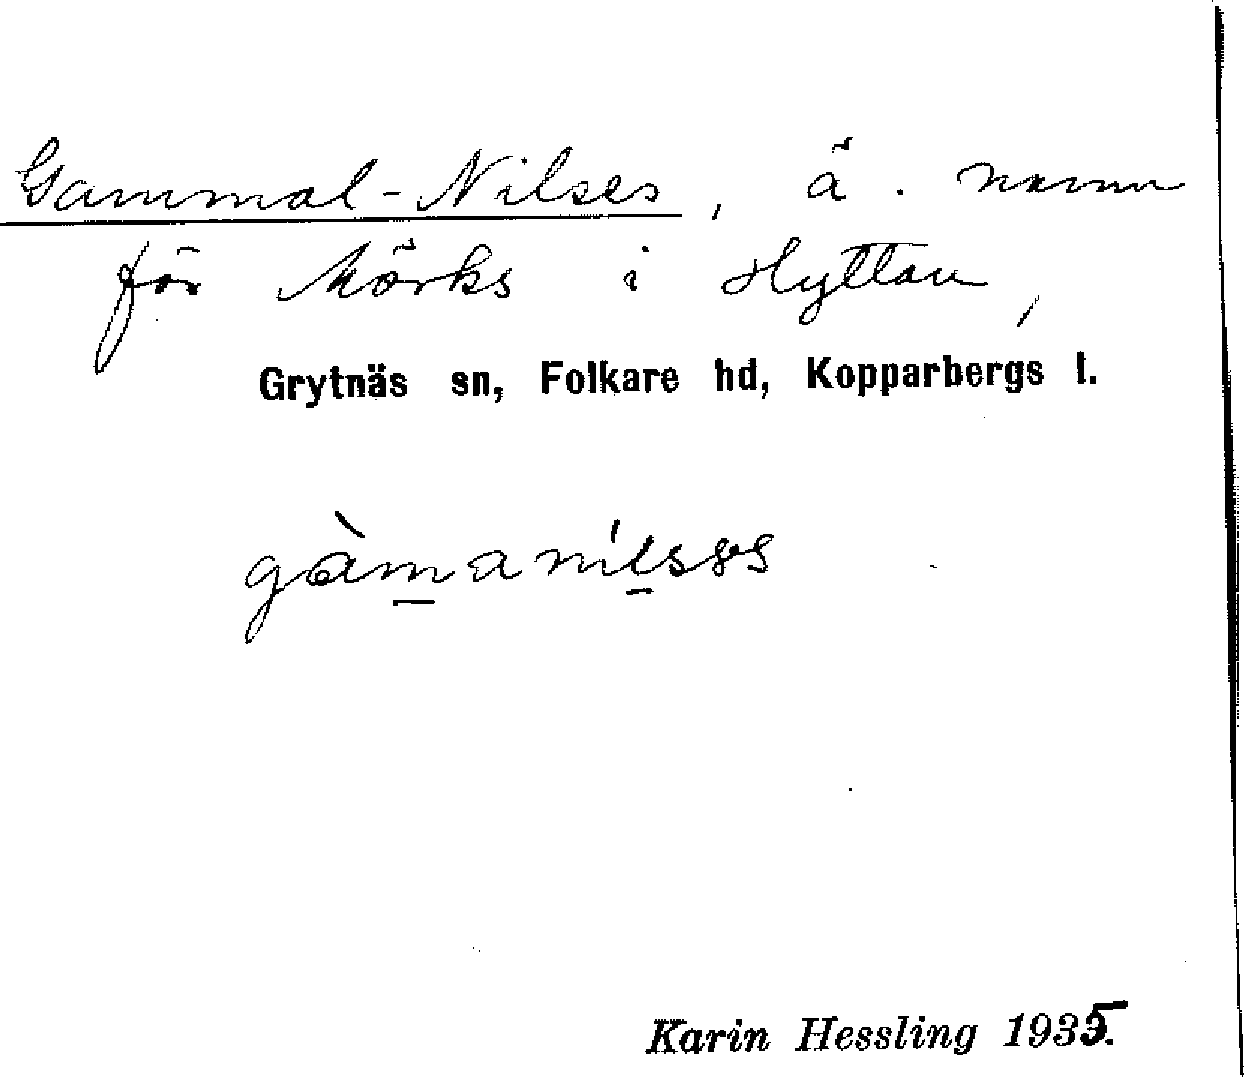 Gammal-Nilses, ä. namn
för Mörks i Hyttan,
Grytnäs sn, Folkare hd, Kopparbergs l.
gàmanilsɐs
Karin Hessling 1935.